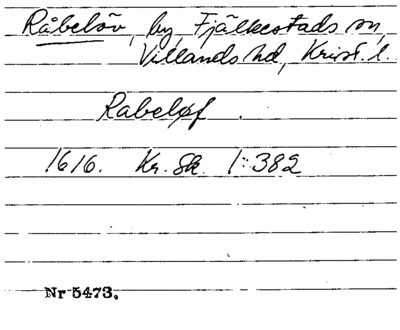 Råbelöv, by, Fjälkestads sn,
Villands hd, Krist. l.
Rabeløf.
1616. Kr. Sk. 1:382
Nr 5473.